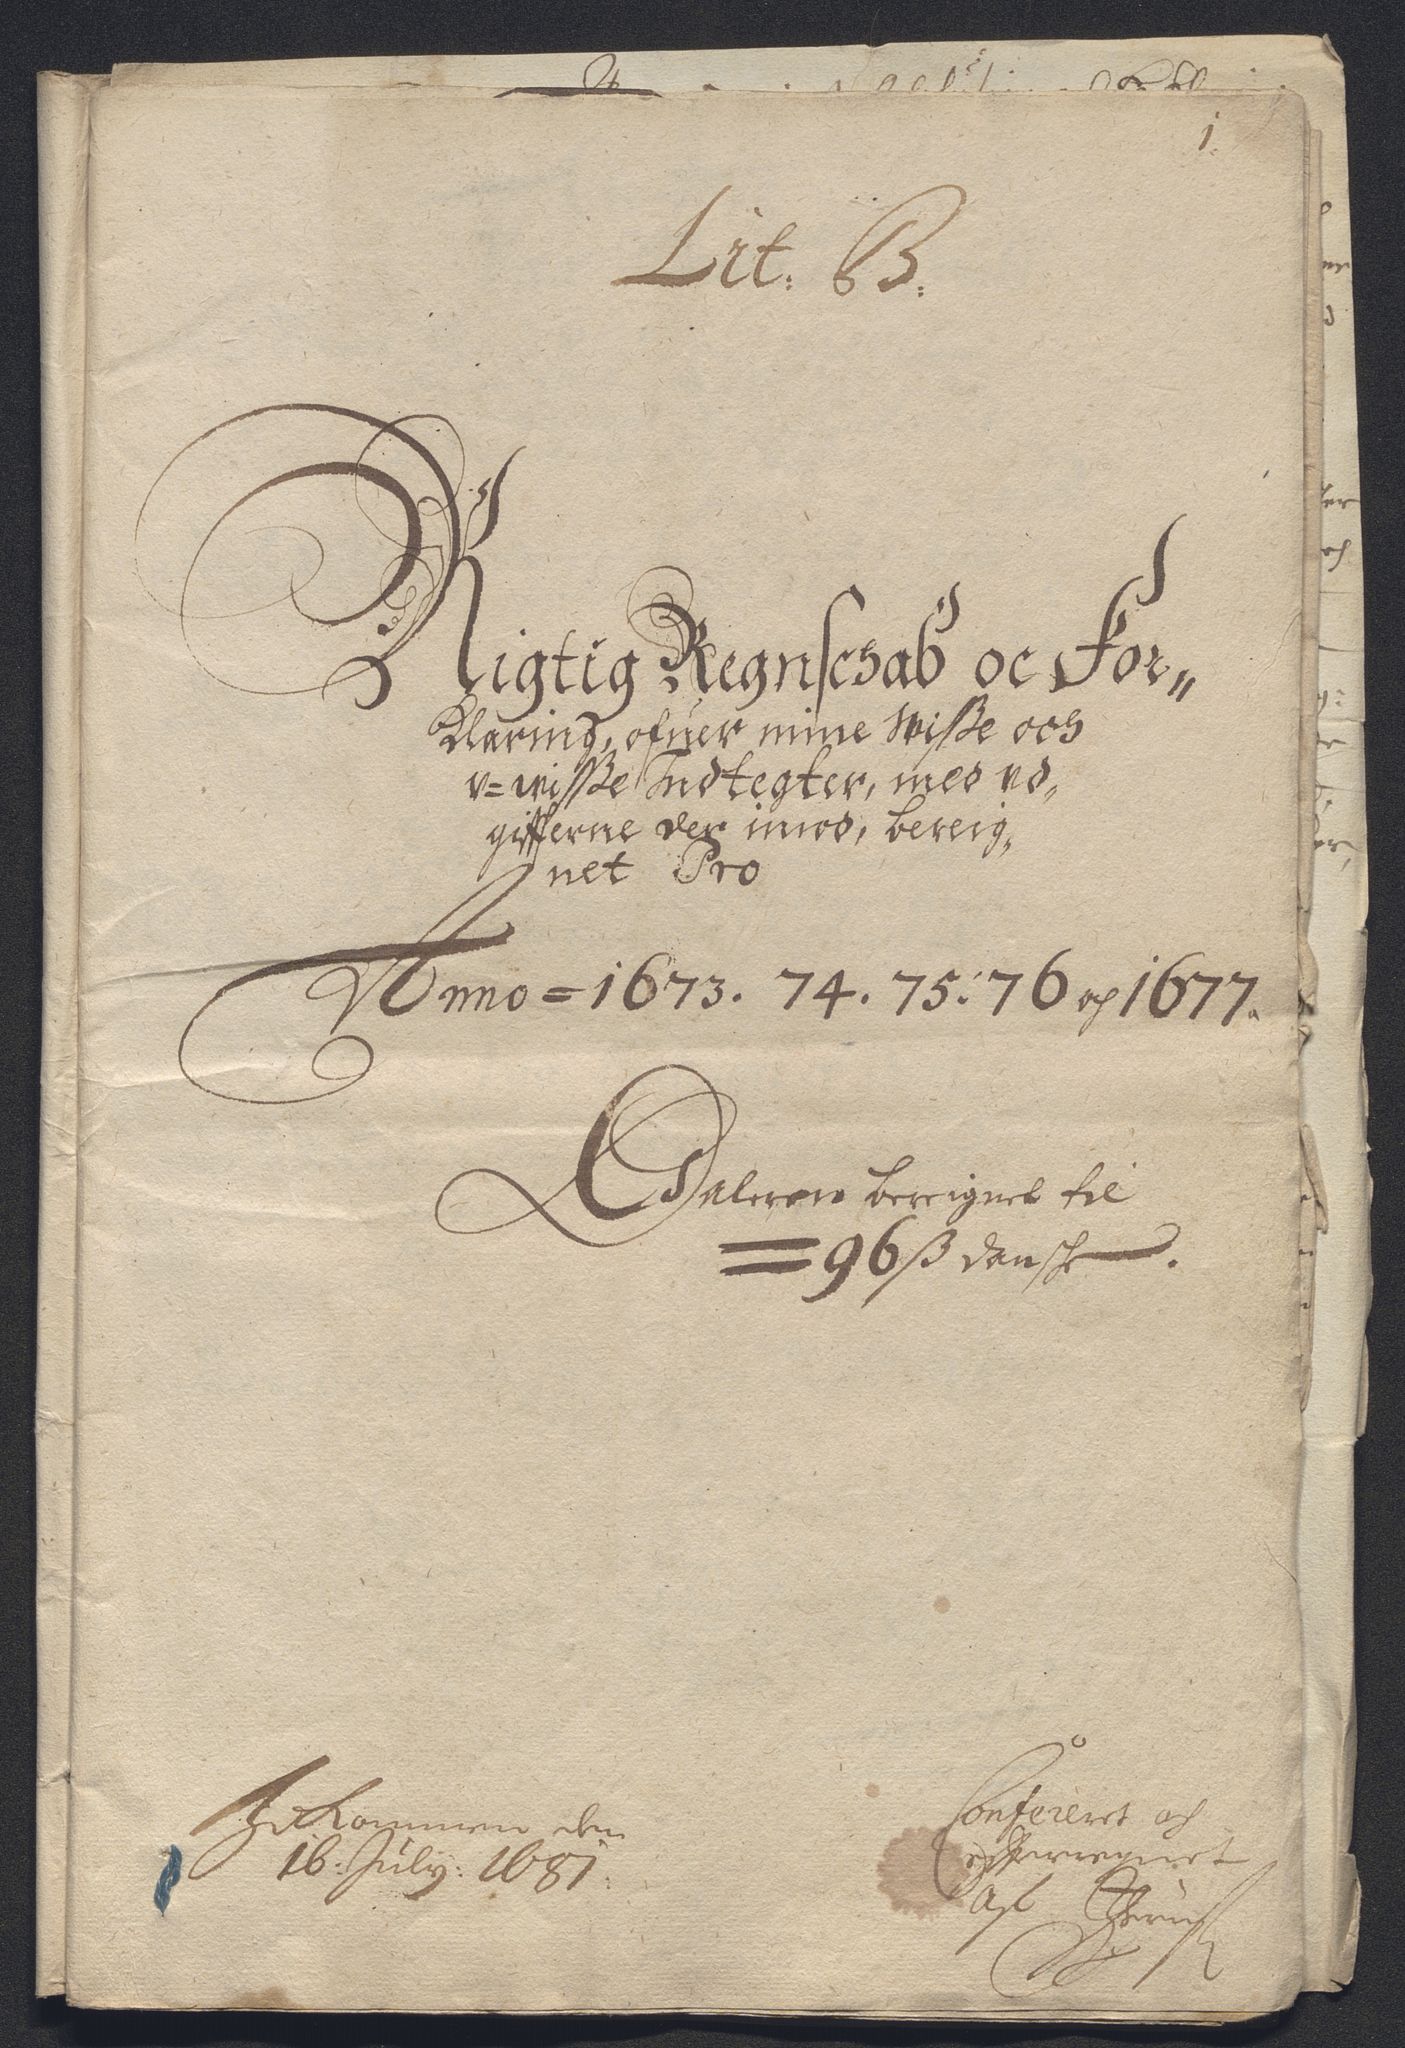 1.
Lit: B:
Rigtig Regnschab oc For„
Klaring, ofuer mine Wisse och
v=wisse Indtegter, med vd„
gifterne der imod, bereig„
net Pro
Anno = 1673. 74. 75: 76 och 1677.
Daleren bereignet til
=96 ß dansche.
Inkommen den
16. July: 1681.
Confereret och
effterregnet
Af